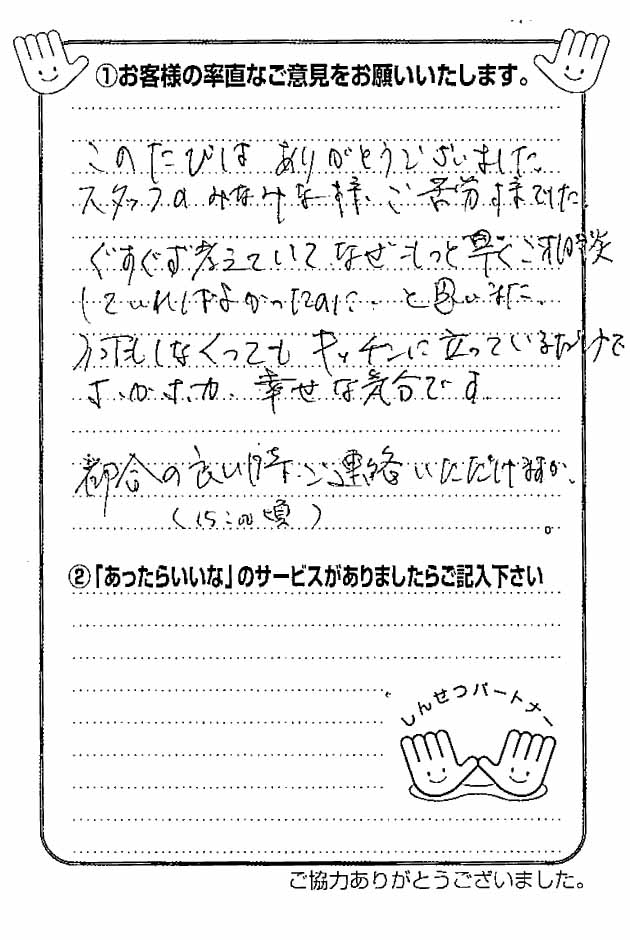 ①お客様の率直なご意見をお願いいたします。
このたびは ありがとうございました。
スタッフの みなみな様、ご苦労様でした。
ぐすぐず考えていて なぜ もっと早くご相談
していればよかったのに・と思いました。
何もしなくっても キッチンに立っているだけで
ホカホカ 幸せな気分です
都合の良い時 ご連絡いただけますか。
②「あったらいいな」のサービスがありましたらご記入下さい
しんせつパートナー
ご協力ありがとうございました。